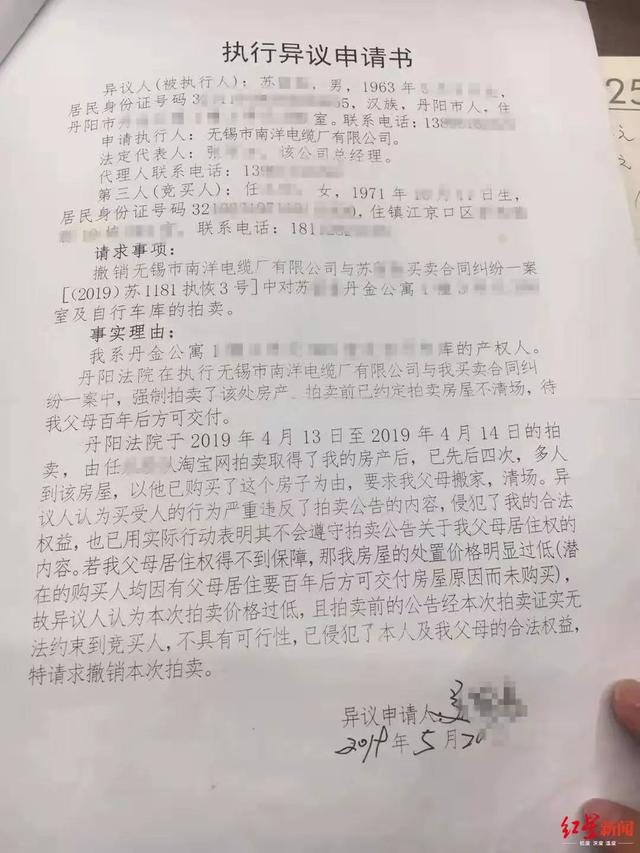 执行异议申请书
异议人(被执行人)：苏 ，男，1963年
居民身份证号码3 55，汉族，丹阳市人，住
丹阳市 室。联系电话：138
申请执行人：无锡市南洋电缆厂有限公司。
法定代表人：张 ，该公司总经理。
代理人联系电话：13
第三人(竞买人)：任 女，1971年 生，
居民身份证号码 ，住镇江京口区
联系电话：181
请求事项：
撤销无锡市南洋电缆厂有限公司与苏 买卖合同纠纷一案
[(2019)苏1181执恢3号]中对苏 丹金公寓1
室及自行车库的拍卖。
事实理由：
我系丹金公寓1 库的产权人。
丹阳法院在执行无锡市南洋电缆厂有限公司与我买卖合同纠
纷一案中，强制拍卖了该处房产，拍卖前已约定拍卖房屋不清场，待
我父母百年后方可交付。
丹阳法院于2019年4月13日至2019年4月14日的拍
卖，由任 从淘宝网拍卖取得了我的房产后，已先后四次，多人
到该房屋，以他已购买了这个房子为由，要求我父母搬家，清场。异
议人认为买受人的行为严重违反了拍卖公告的内容，侵犯了我的合法
权益，也已用实际行动表明其不会遵守拍卖公告关于我父母居住权的
内容。若我父母居住权得不到保障，那我房屋的处置价格明显过低(潜
在的购买人均因有父母居住要百年后方可交付房屋原因而未购买)，
故异议人认为本次拍卖价格过低，且拍卖前的公告经本次拍卖证实无
法约束到竞买人，不具有可行性，已侵犯了本人及我父母的合法权益，
特请求撤销本次拍卖。
异议申请人：
2019年5月20
25
元
元
红星新闻